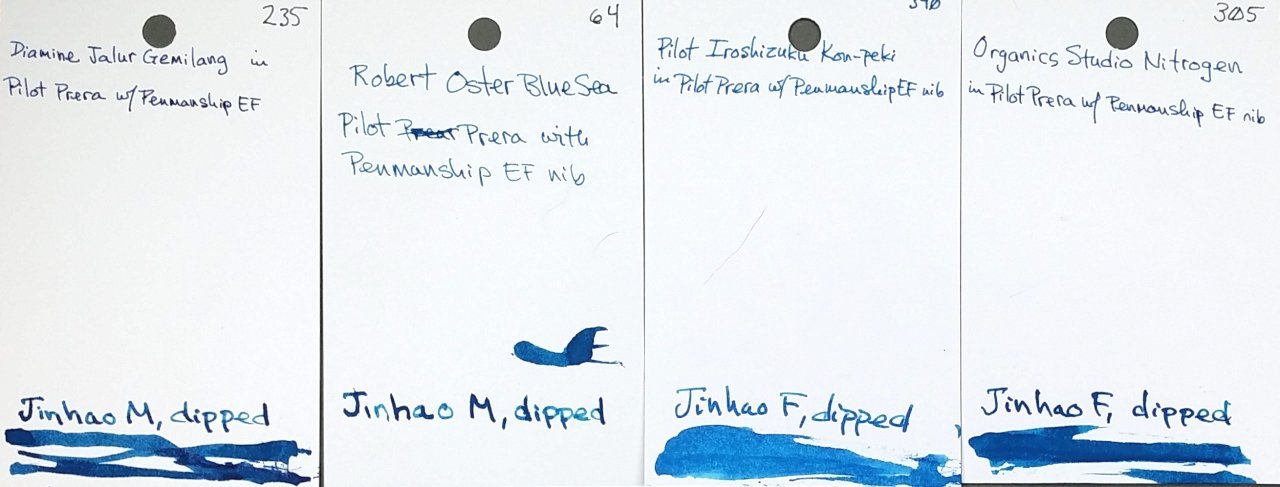 235
Diamine Jalur Gemilang in
Pilot Prera w/ Penmanship EF
Jinhao M, dipped
64
Robert Oster Blue Sea
Pilot Prera with
Penmanship EF nib
Jinhao M, dipped
Pilot Iroshizuku Kon-peki
in Pilot Prera w/ Penmanship EF nib
Jinhao F, dipped
305
Organics Studio Nitrogen
in Pilot Prera w/ Penmanship EF nib
Jinhao F, dipped